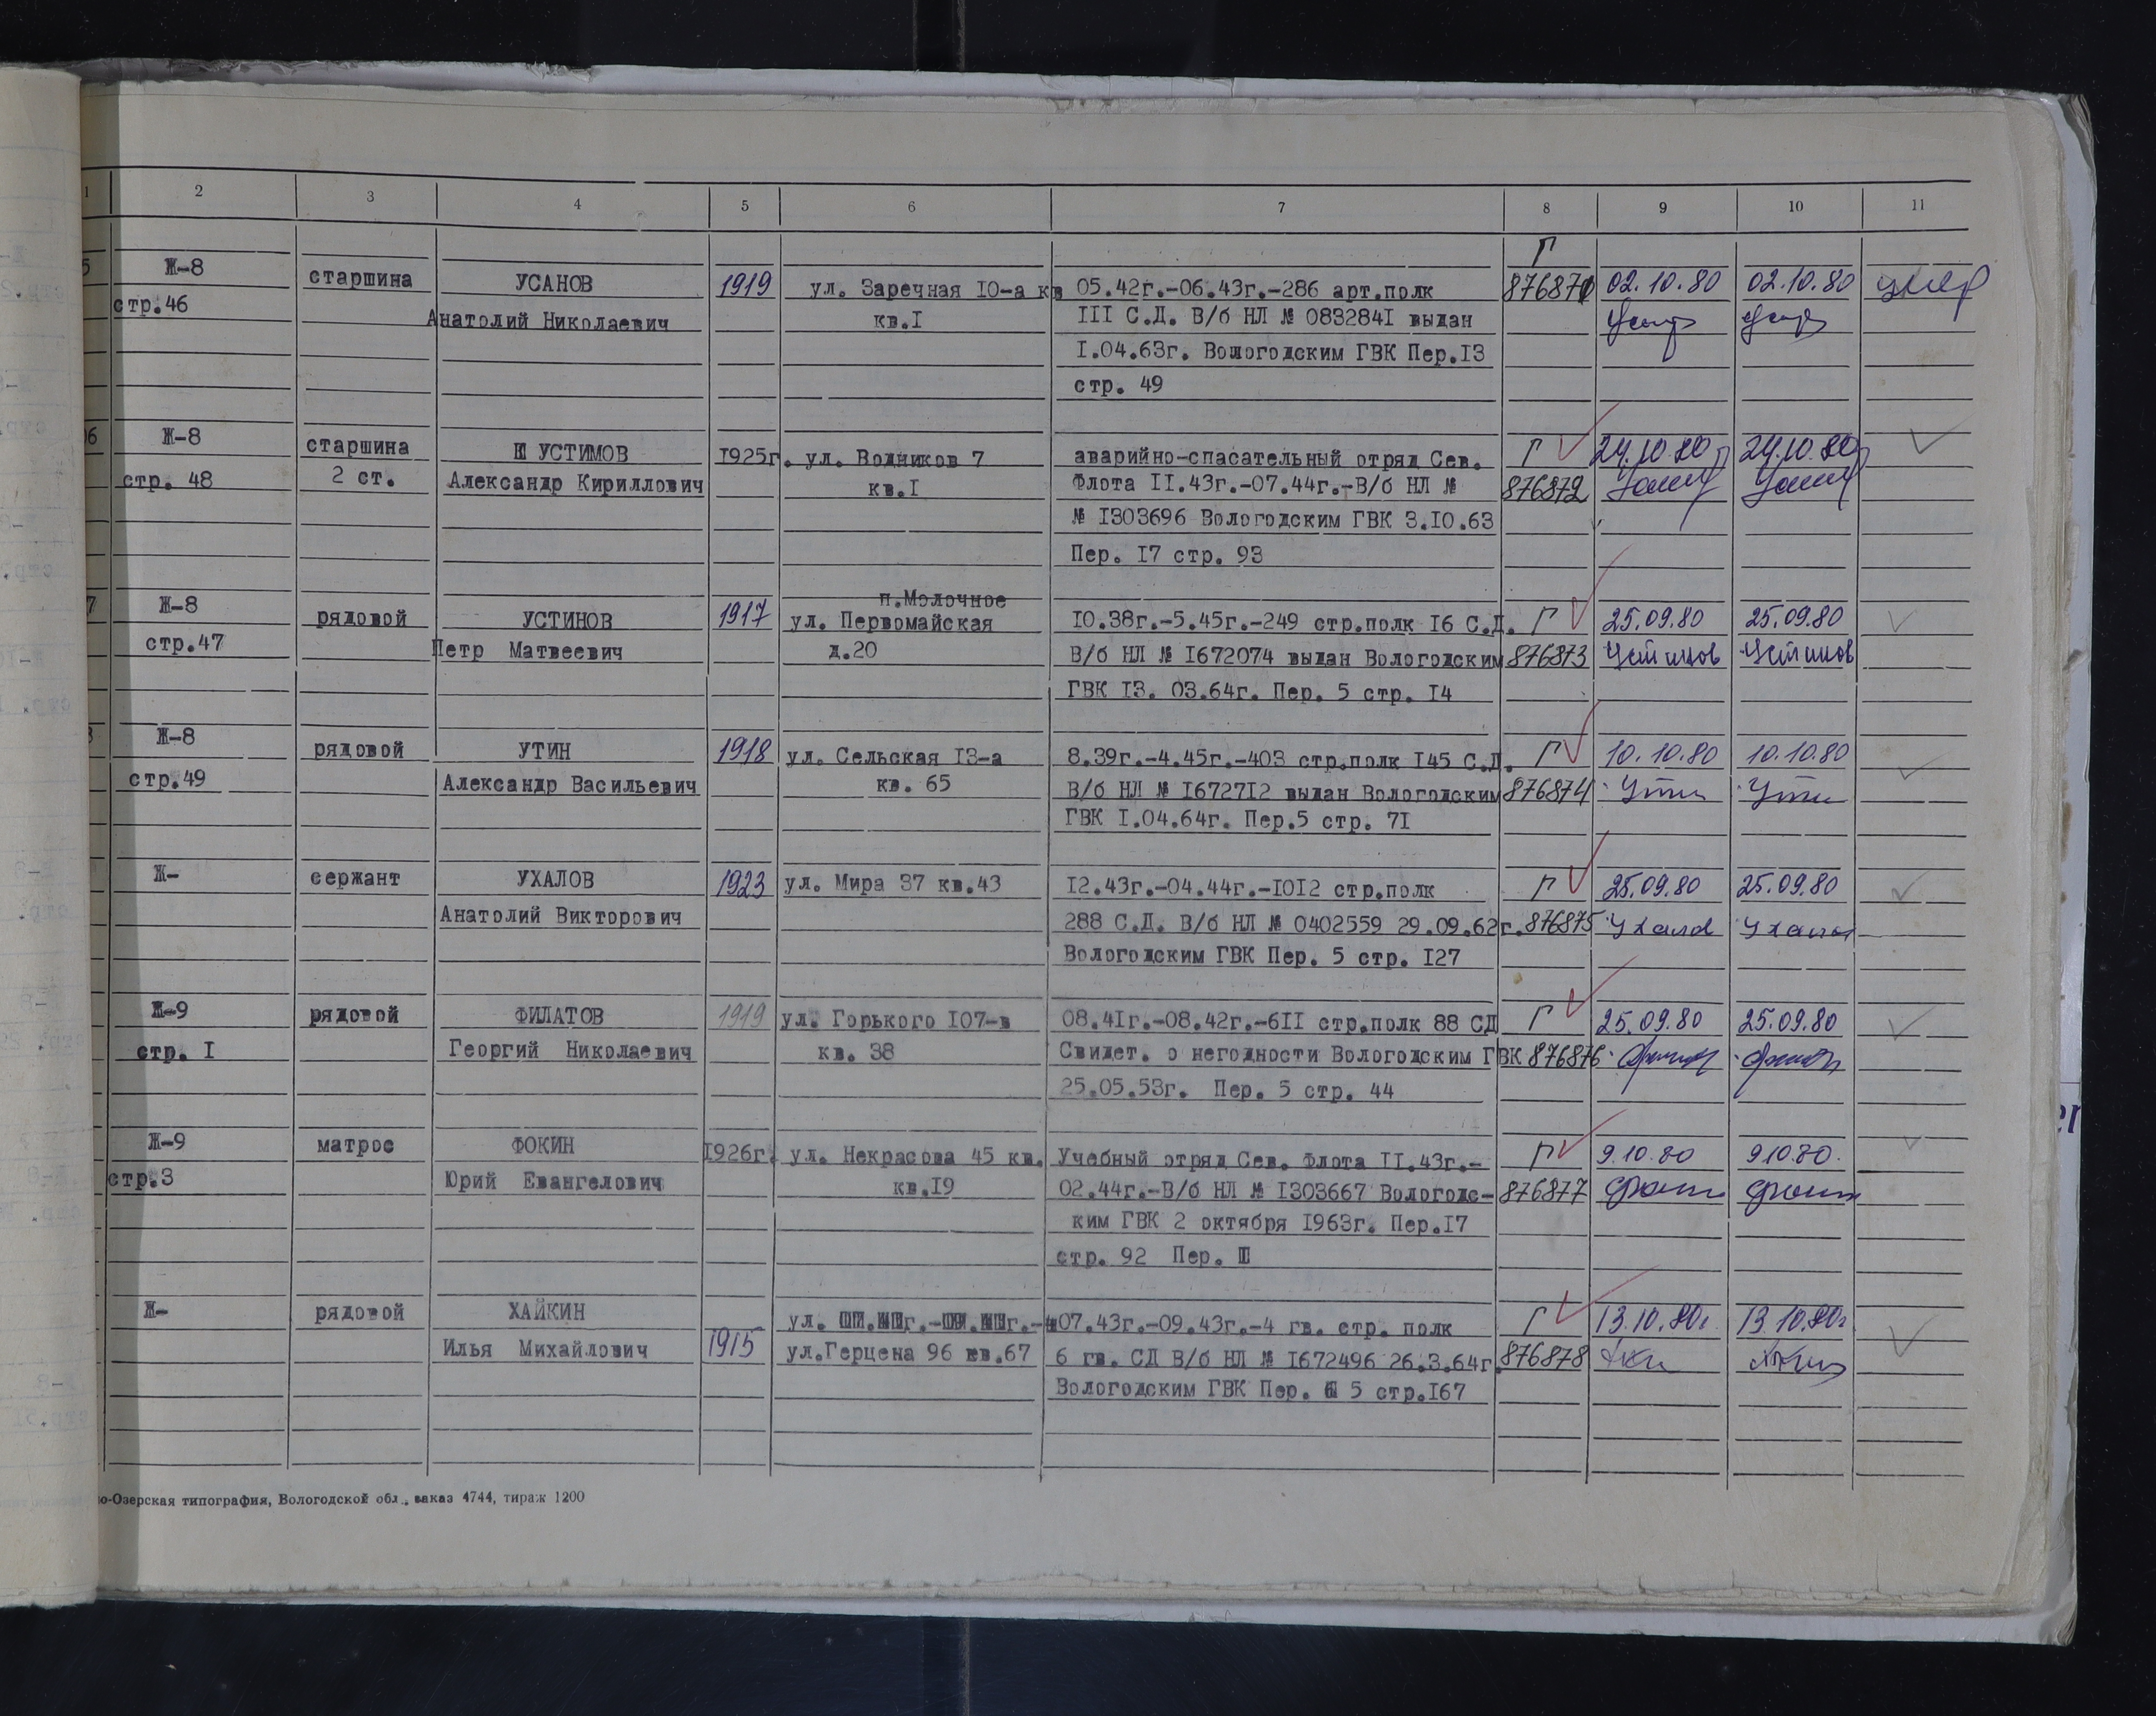 1 2 3 4 5 6 7 8 9 10 11
Г
5 Ж-8 старшина УСАНОВ 1919 ул. Заречная 10-а кв 05.42г.-06.43г.-286 арт.полк 02.10.80 02.10.80 умер
стр.46 Анатолий Николаевич кв.I III С.Д. В/б НЛ № 0832841 выдан
I.04.63г. Вологодским ГВК Пер.13
стр. 49
06 Ж-8 старшина УСТИМОВ 1925г. ул. Водников 7 аварийно-спасательный отряд Сев. Г 24.10.80 24.10.80
стр. 48 2 ст. Александр Кириллович кв.I Флота II.43г.-07.44г.-В/б НЛ № 876872
№ 1303696 Вологодским ГВК 3.10.63
Пер. 17 стр. 93
п.Молочное
7 Ж-8 рядовой УСТИНОВ 1917 ул. Первомайская 10.38г.-5.45г.-249 стр.полк 16 С.Д. Г 25.09.80 25.09.80
стр.47 Петр Матвеевич д.20 В/б НЛ № 1672074 выдан Вологодским 876873 Устинов Устинов
ГВК 13. 03.64г. Пер. 5 стр. 14
Ж-8 рядовой УТИН 1918 ул. Сельская 13-а 8.39г.-4.45г.-403 стр.полк 145 С.Д. Г 10.10.80 10.10.80
стр.49 Александр Васильевич кв. 65 В/б НЛ № 1672712 выдан Вологодским 876874
ГВК I.04.64г. Пер.5 стр. 71
Ж- сержант УХАЛОВ 1923 ул. Мира 37 кв.43 12.43г.-04.44г.-1012 стр.полк Г 25.09.80 25.09.80
Анатолий Викторович 288 С.Д. В/б НЛ № 0402559 29.09.62г. 876875 Ухалов Ухалов
Вологодским ГВК Пер. 5 стр. 127
Ж-9 рядовой ФИЛАТОВ 1919 ул. Горького 107-в 08.41г.-08.42г.-611 стр.полк 88 СД Г 25.09.80 25.09.80
стр. I Георгий Николаевич кв. 38 Свидет. о негодности Вологодским ГВК 876876
25.05.53г. Пер. 5 стр. 44
Ж-9 матрос ФОКИН 1926г. ул. Некрасова 45 кв. Учебный отряд Сев. Флота II.43г.- Г 9.10.80 9.10.80.
стр.3 Юрий Евангелович кв.19 02.44г.-В/б НЛ № 1303667 Вологодс- 876877
ким ГВК 2 октября 1963г. Пер.17
стр. 92 Пер.
Ж- рядовой ХАЙКИН ул. 07.43г.-09.43г.-4 гв. стр. полк Г 13.10.80г 13.10.80г
Илья Михайлович 1915 ул.Герцена 96 кв.67 6 гв. СД В/б НЛ № 1672496 26.3.64г. 876878
Вологодским ГВК Пер. 5 стр.167
о-Озерская типография, Вологодской обл., заказ 4744, тираж 1200